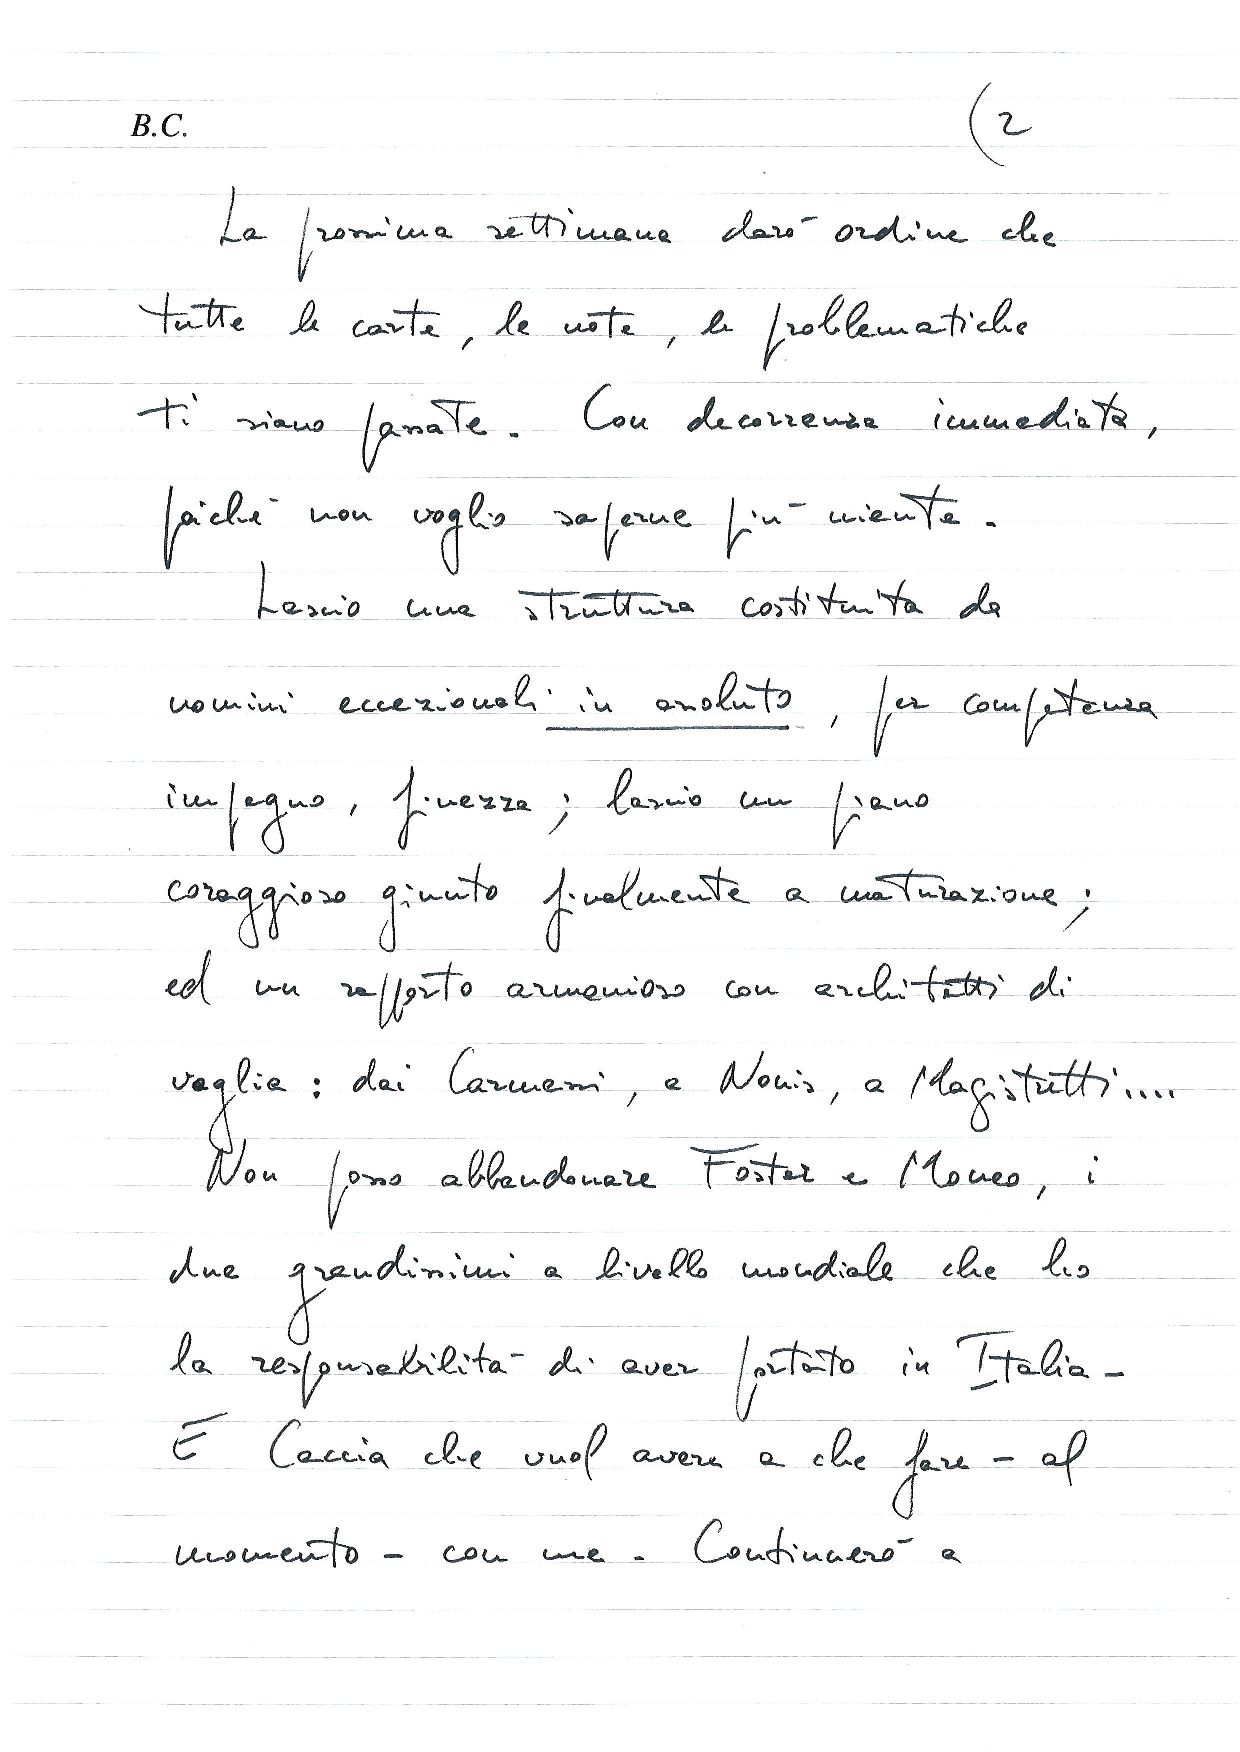 B.C.
(2
La prossima settimana darò ordine che
tutte le carte, le note, le problematiche
ti siano passate. Con decorrenza immediata,
poiché non voglio saperne più niente.
Lascio una struttura costituita da
uomini eccezionali in assoluto, per competenza
impegno, finezza; lascio un piano
coraggioso giunto finalmente a maturazione;
ed un rapporto armonioso con architetti di
vaglia: dai Carmassi, a Nonis, a Magistretti....
Non posso abbandonare Foster e Moneo, i
due grandissimi a livello mondiale che ho
la responsabilità di aver portato in Italia -
E Caccia che vuol avere a che fare - al
momento - con me. Continuerò a